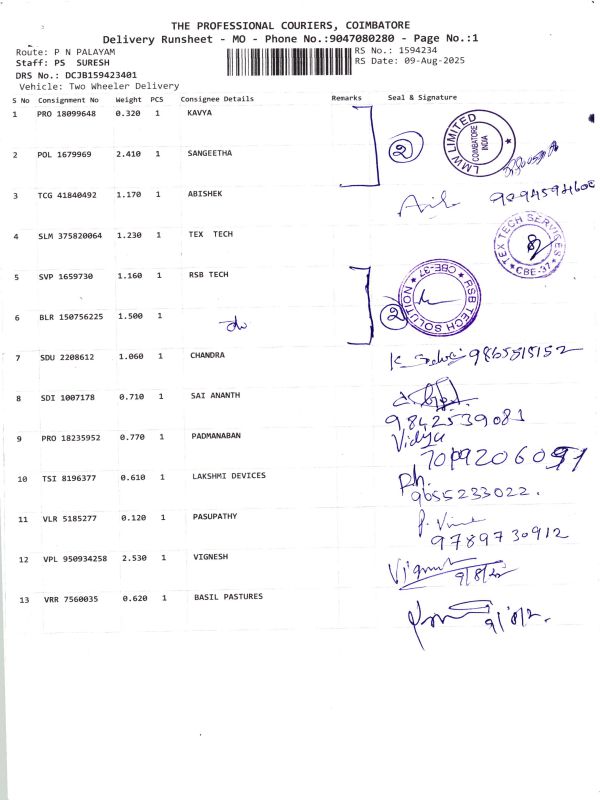 THE PROFESSIONAL COURIERS, COIMBATORE
Delivery Runsheet - MO - Phone No.:9047080280 - Page No.:1
Route: P N PALAYAM
RS No.: 1594234
Staff: PS SURESH
RS Date: 09-Aug-2025
DRS No.: DCJB159423401
Vehicle: Two Wheeler Delivery
S No Consignment No Weight PCS Consignee Details Remarks Seal & Signature
1 PRO 18099648 0.320 1 KAVYA
LMW LIMITED
COIMBATORE
INDIA
2
2 POL 1679969 2.410 1 SANGEETHA
3 TCG 41840492 1.170 1 ABISHEK
4 SLM 375820064 1.230 1 TEX TECH
TEX TECH SERVICES
CBE-37
5 SVP 1659730 1.160 1 RSB TECH
RSB TECH SOLUTION
CBE-37
6 BLR 150756225 1.500 1
do
2
7 SDU 2208612 1.060 1 CHANDRA
9865515152
8 SDI 1007178 0.710 1 SAI ANANTH
9842539081
9 PRO 18235952 0.770 1 PADMANABAN
Vidya
10 TSI 8196377 0.610 1 LAKSHMI DEVICES
Ph.
9655233022.
11 VLR 5185277 0.120 1 PASUPATHY
9789730912
12 VPL 950934258 2.530 1 VIGNESH
13 VRR 7560035 0.620 1 BASIL PASTURES